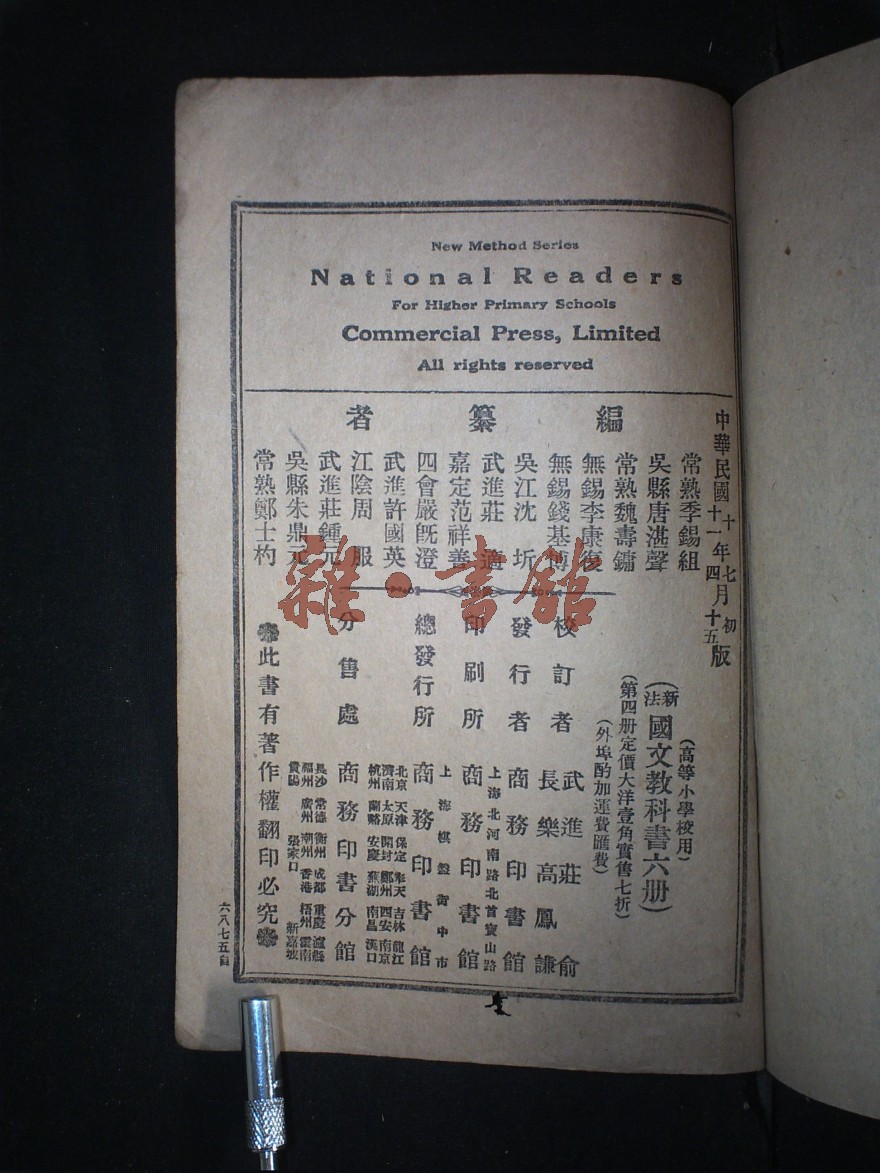 New Method Series
National Readers
For Higher Primary Schools
Commercial Press, Limited
All rights reserved
中華民國十年七月初版
十一年四月十五版
(高等小學校用)
(新法國文教科書六册)
(第四册定價大洋壹角實售七折)
(外埠酌加運費匯費)
編纂者
常熟季錫組
吳縣唐湛聲
常熟魏壽鏞
無錫李康復
無錫錢基博
吳江沈圻
武進莊適
嘉定范祥善
四會嚴既澄
武進許國英
江陰周服
武進莊鍾元
吳縣朱鼎元
常熟鄭士杓
校訂者
武進莊俞
長樂高鳳謙
發行者 商務印書館
印刷所
上海北河南路北首寶山路
商務印書館
總發行所
上海棋盤街中市
商務印書館
分售處
北京 天津 保定 奉天 吉林 龍江
濟南 太原 開封 鄭州 西安 南京
杭州 蘭谿 安慶 蕪湖 南昌 漢口
商務印書分館
長沙 常德 衡州 成都 重慶 瀘縣
福州 廣州 潮州 香港 梧州 雲南
貴陽 張家口 新嘉坡
此書有著作權翻印必究
六八七五自
雜·書館